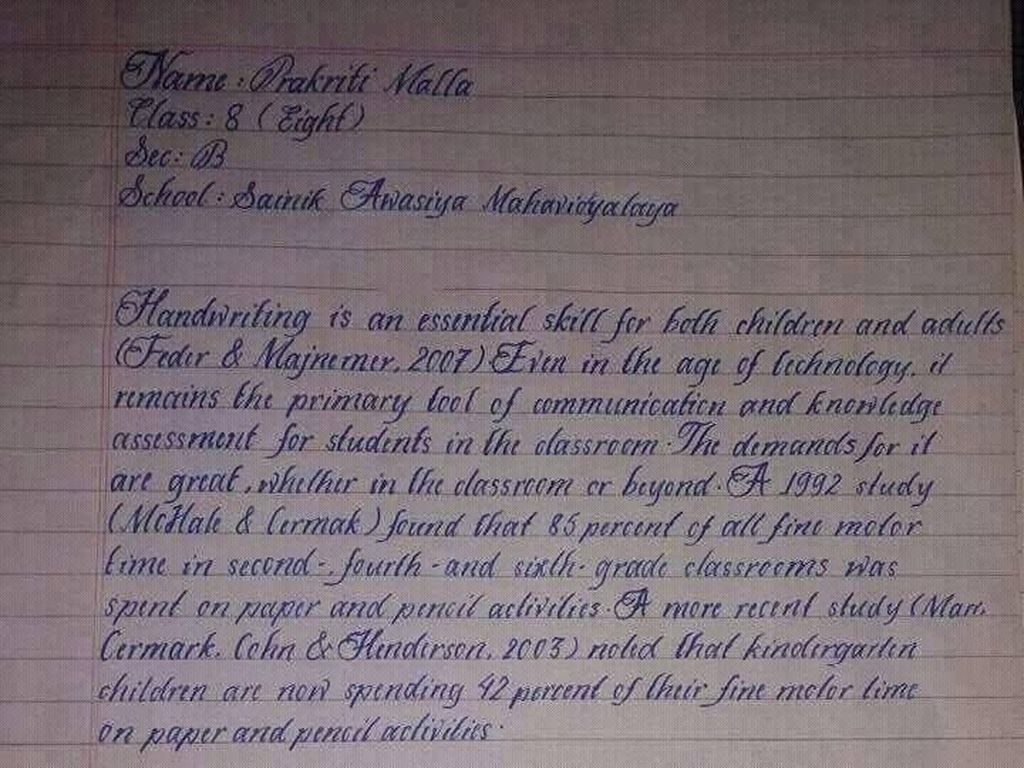 Name : Prakriti Malla
Class : 8 (Eight)
Sec : B
School : Sainik Awasiya Mahavidyalaya
Handwriting is an essential skill for both children and adults
(Feder & Majnemer, 2007) Even in the age of technology, it
remains the primary tool of communication and knowledge
assessment for students in the classroom. The demands for it
are great, whether in the classroom or beyond. A 1992 study
(McHale & Cermak) found that 85 percent of all fine motor
time in second-, fourth-and sixth-grade classrooms was
spent on paper and pencil activities. A more recent study (Marr,
Cermark, Cohn & Henderson, 2003) noted that kindergarten
children are now spending 42 percent of their fine motor time
on paper and pencil activities.